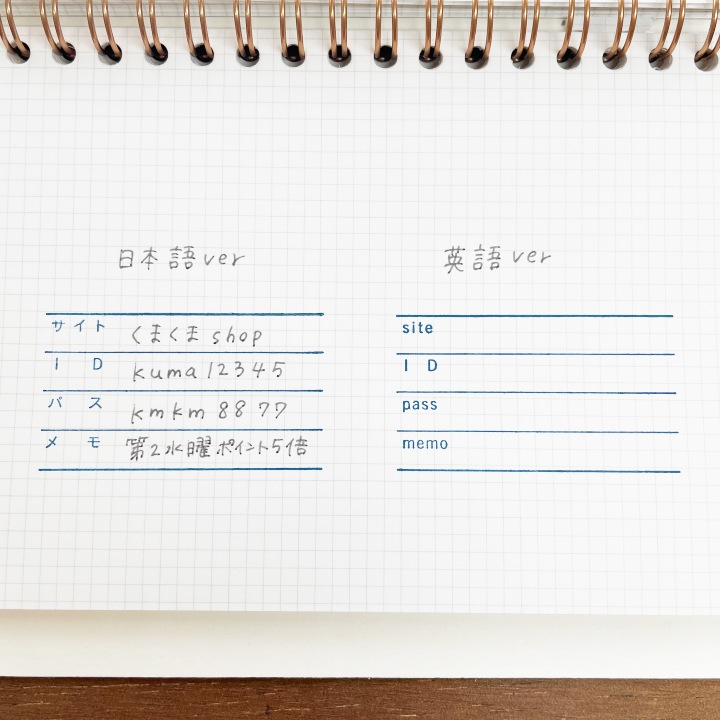 日本語ver
サイト くまくま shop
ID kuma12345
パス kmkm8877
メモ 第2水曜ポイント5倍
英語ver
site
ID
pass
memo